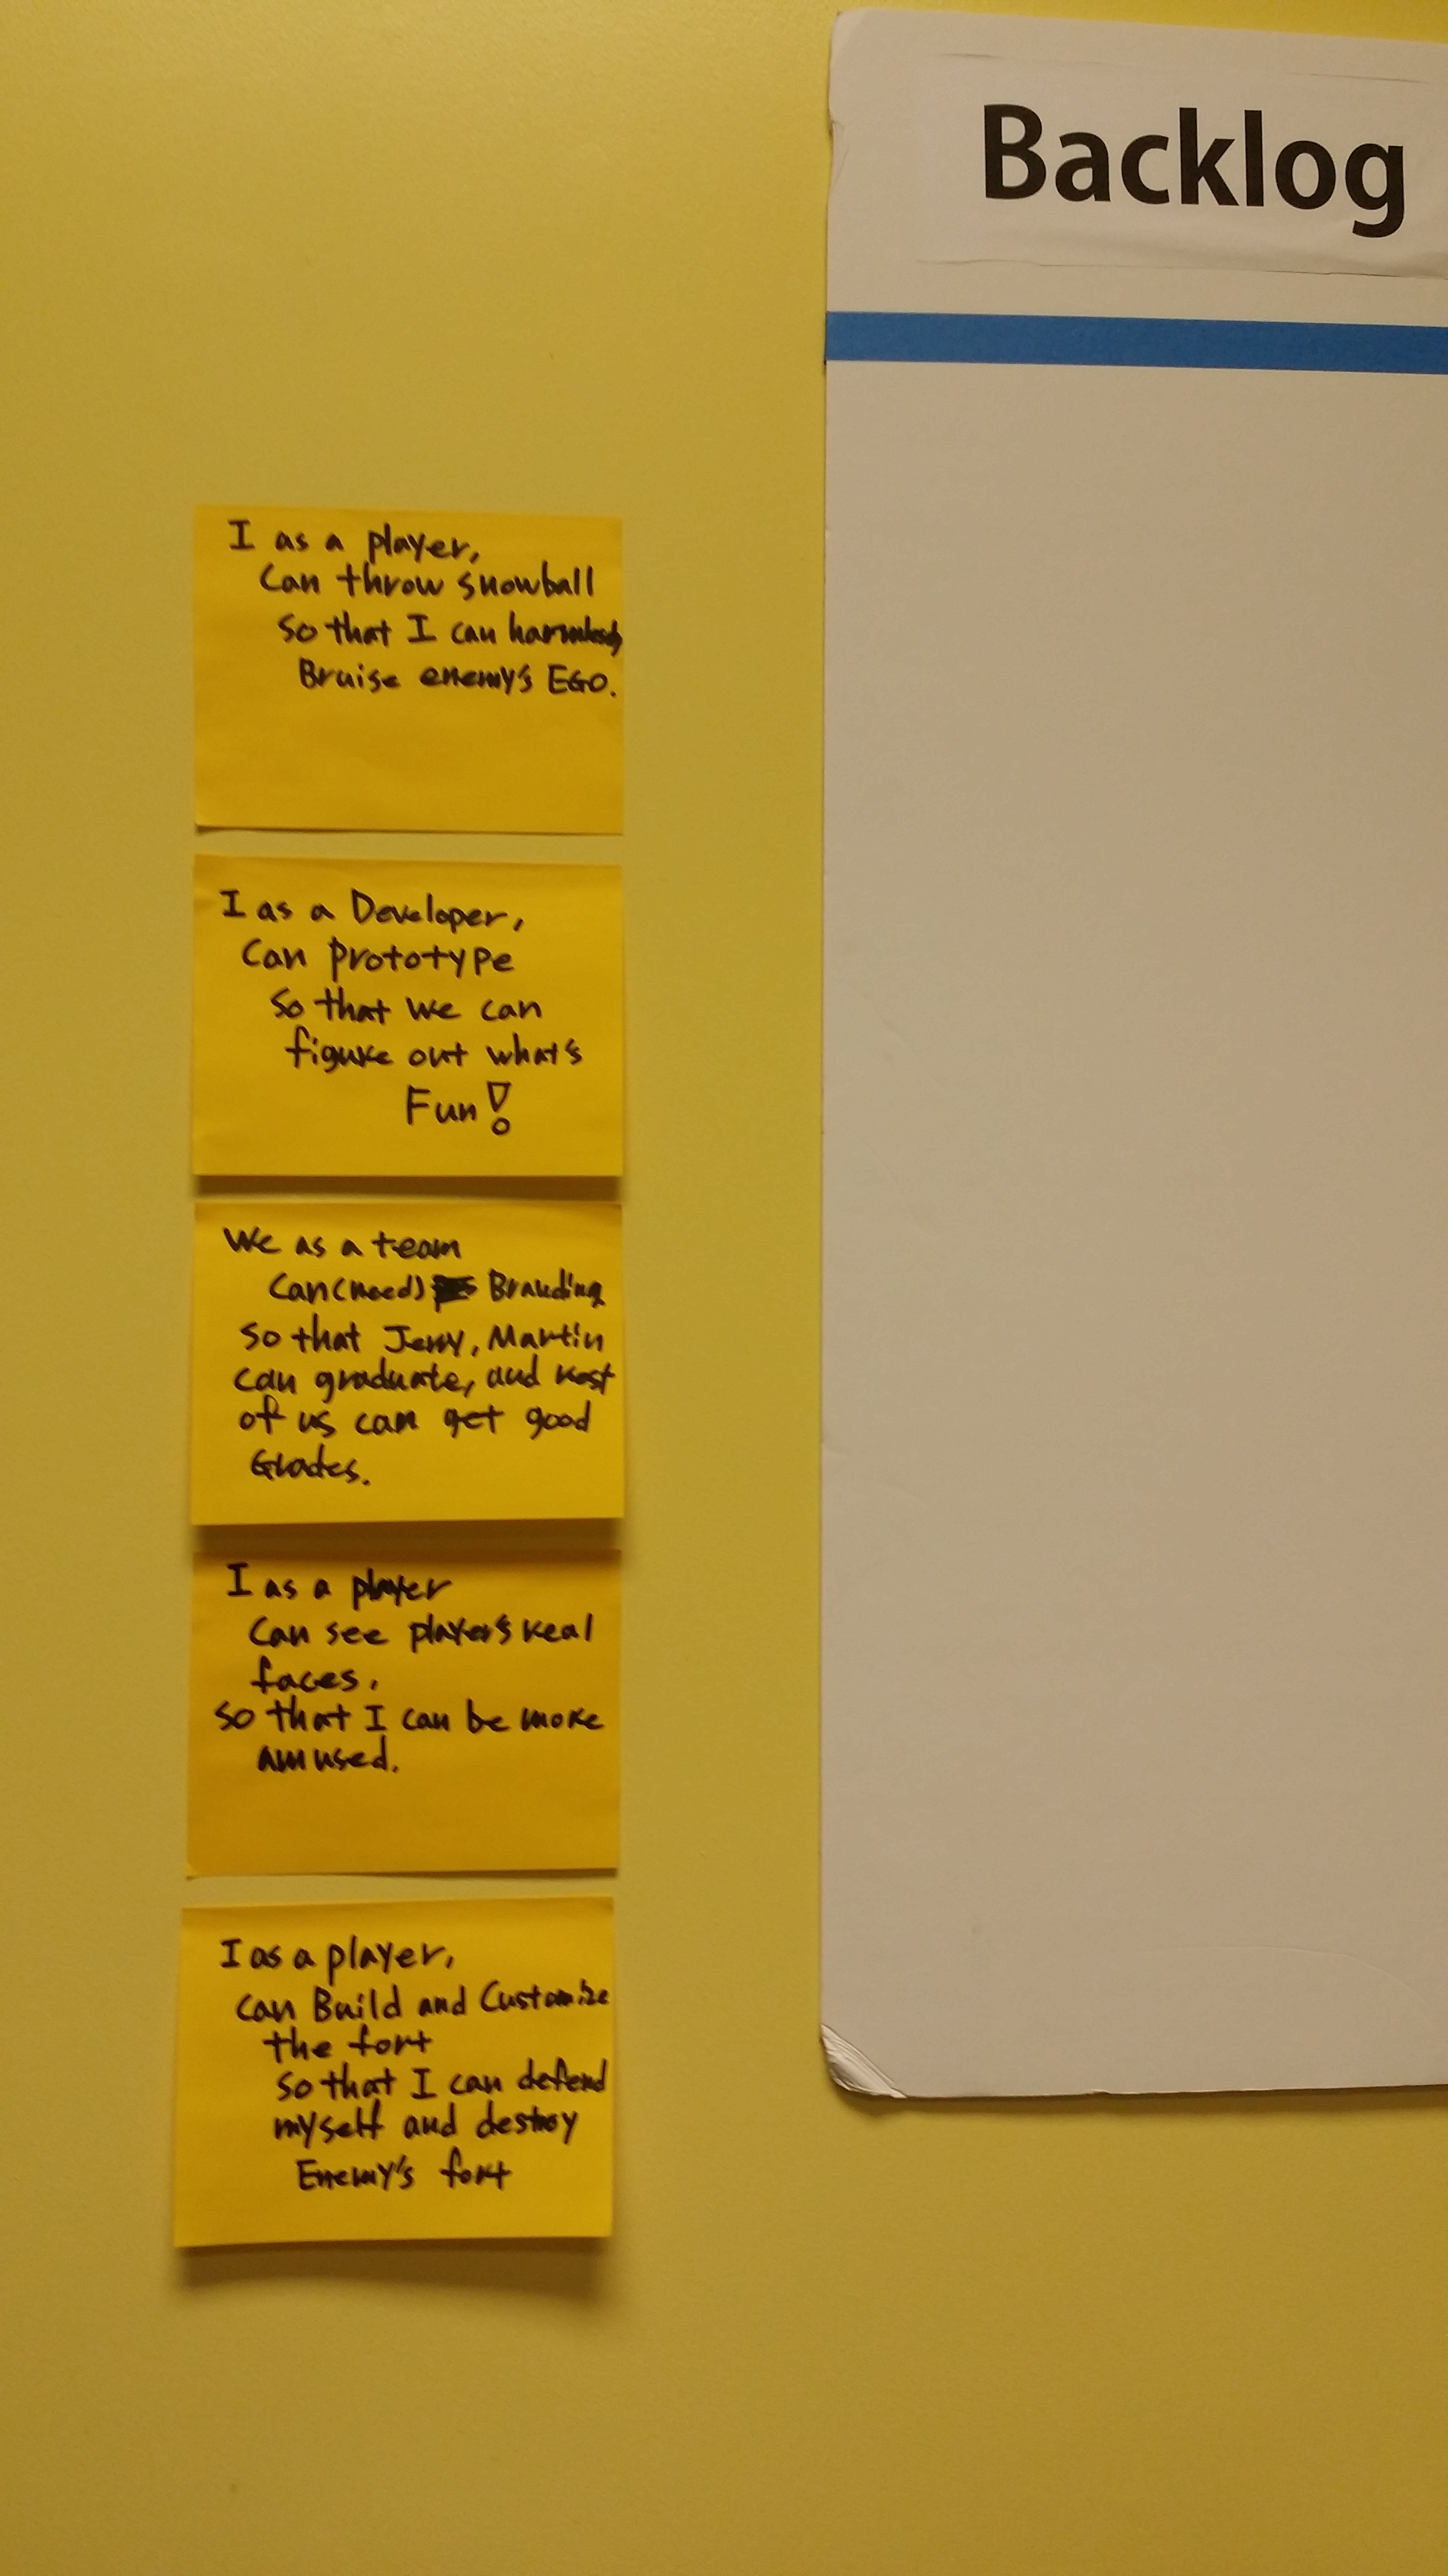 Backlog
I as a player,
Can throw snowball
so that I can harmlessly
Bruise enemy's EGO.
I as a Developer,
Can prototype
so that we can
figure out what's
Fun!
We as a team
Can(need) Branding
so that Jerry, Martin
can graduate, and rest
of us can get good
Grades.
I as a player
Can see player's real
faces,
so that I can be more
amused.
I as a player,
can Build and Customize
the fort
so that I can defend
myself and destroy
Enemy's fort